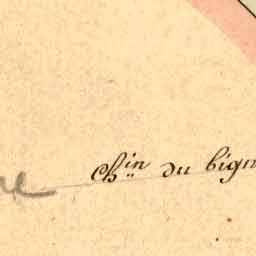 Ch.in du bign